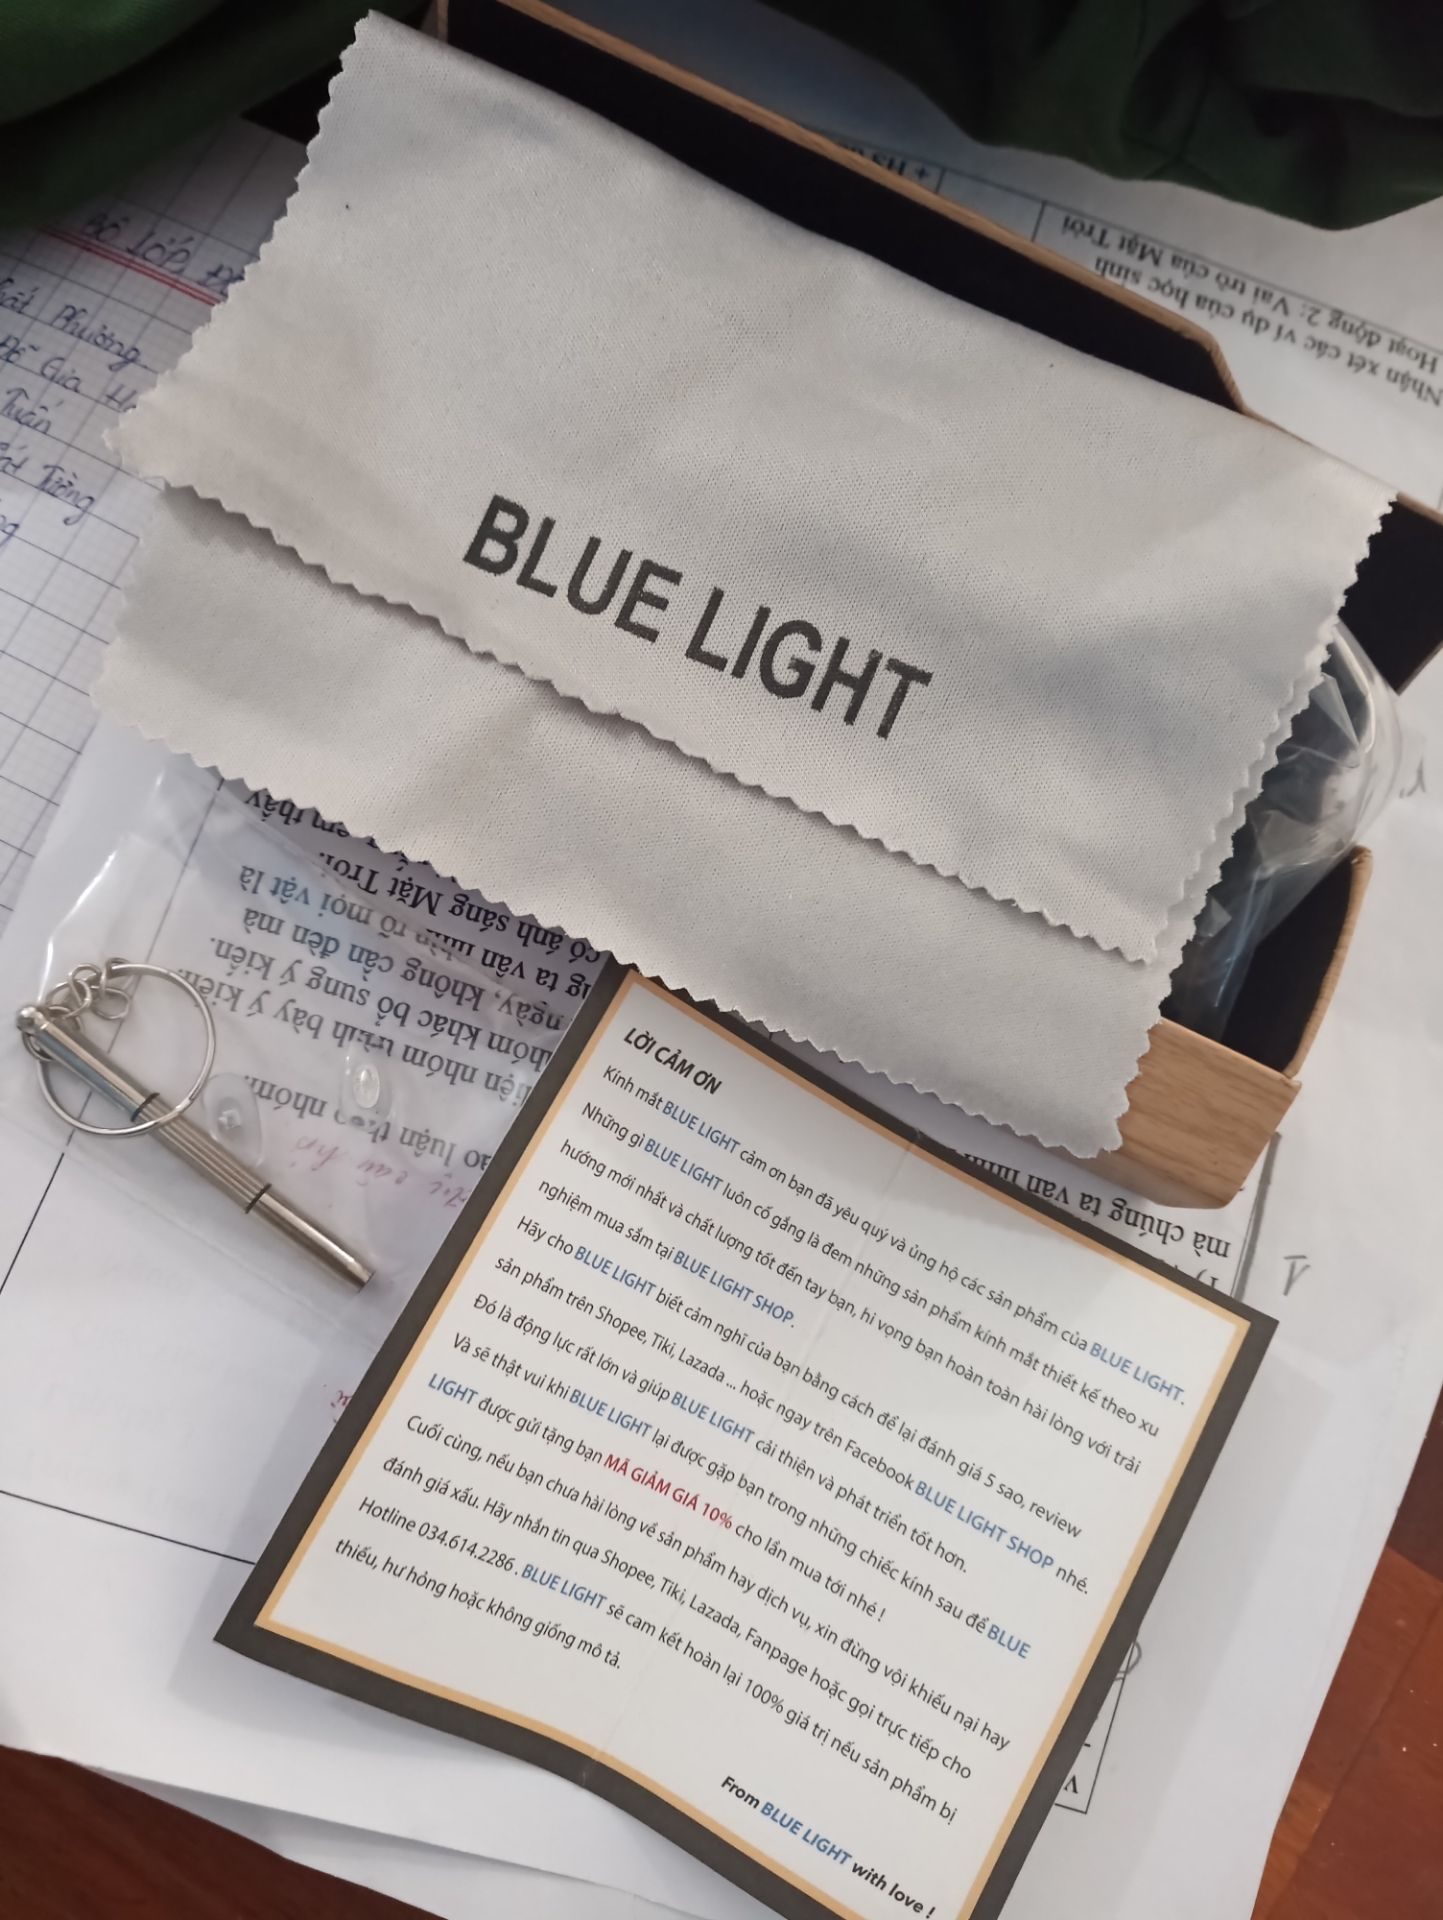 BLUE LIGHT
LỜI CẢM ƠN
Kính mắt BLUE LIGHT cảm ơn bạn đã yêu quý và ủng hộ các sản phẩm của BLUE LIGHT.
Những gì BLUE LIGHT luôn cố gắng là đem những sản phẩm kính mắt thiết kế theo xu
hướng mới nhất và chất lượng tốt đến tay bạn, hi vọng bạn hoàn toàn hài lòng với trải
nghiệm mua sắm tại BLUE LIGHT SHOP.
Hãy cho BLUE LIGHT biết cảm nghĩ của bạn bằng cách để lại đánh giá 5 sao, review
sản phẩm trên Shopee, Tiki, Lazada ... hoặc ngay trên Facebook BLUE LIGHT SHOP nhé.
Đó là động lực rất lớn và giúp BLUE LIGHT cải thiện và phát triển tốt hơn.
Và sẽ thật vui khi BLUE LIGHT lại được gặp bạn trong những chiếc kính sau để BLUE
LIGHT được gửi tặng bạn MÃ GIẢM GIÁ 10% cho lần mua tới nhé !
Cuối cùng, nếu bạn chưa hài lòng về sản phẩm hay dịch vụ, xin đừng vội khiếu nại hay
đánh giá xấu. Hãy nhắn tin qua Shopee, Tiki, Lazada, Fanpage hoặc gọi trực tiếp cho
Hotline 034.614.2286 . BLUE LIGHT sẽ cam kết hoàn lại 100% giá trị nếu sản phẩm bị
thiếu, hư hỏng hoặc không giống mô tả.
From BLUE LIGHT with love !
Hoạt động 2: Vai trò của Mặt Trời
Nhận xét các ví dụ của học sinh
luận theo nhóm.
nhóm trình bày ý kiến.
nhóm khác bổ sung ý kiến.
ngày, không cần đèn mà
ta vẫn nhìn rõ mọi vật là
có ánh sáng Mặt Trời.
mà chúng ta vẫn
Phương
Gia
Tuấn
Tường